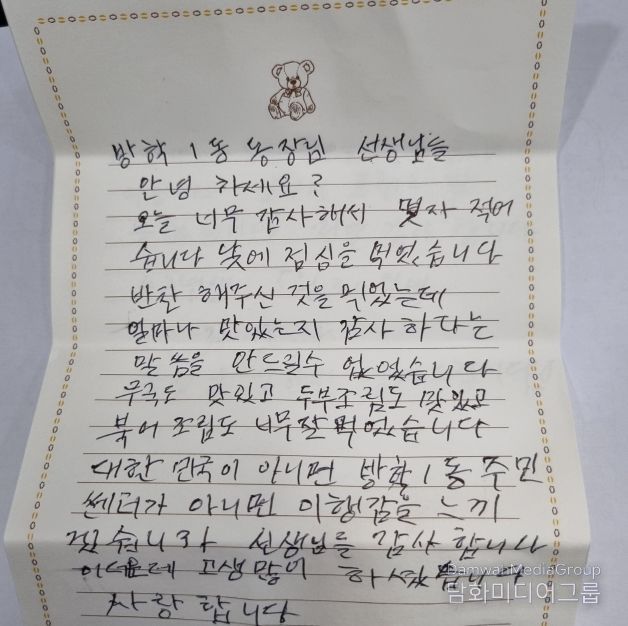 방학 1동 동장님 선생님들
안녕 하세요?
오늘 너무 감사해서 몇자 적어
습니다 낮에 점심을 먹었습니다
반찬 해주신 것을 먹었는데
얼마나 맛있는지 감사 하다는
말씀을 안드릴수 없었습니다
무국도 맛있고 두부조림도 맛있고
북어 조림도 너무잘 먹었습니다
대한 민국이 아니면 방학1동 주민
쎈터가 아니면 이행감을 느끼
겠습니까 선생님들 감사 합니다
고생많이 하셨습니다
사랑 합니다
DamwhaMediaGroup
담화미디어그룹